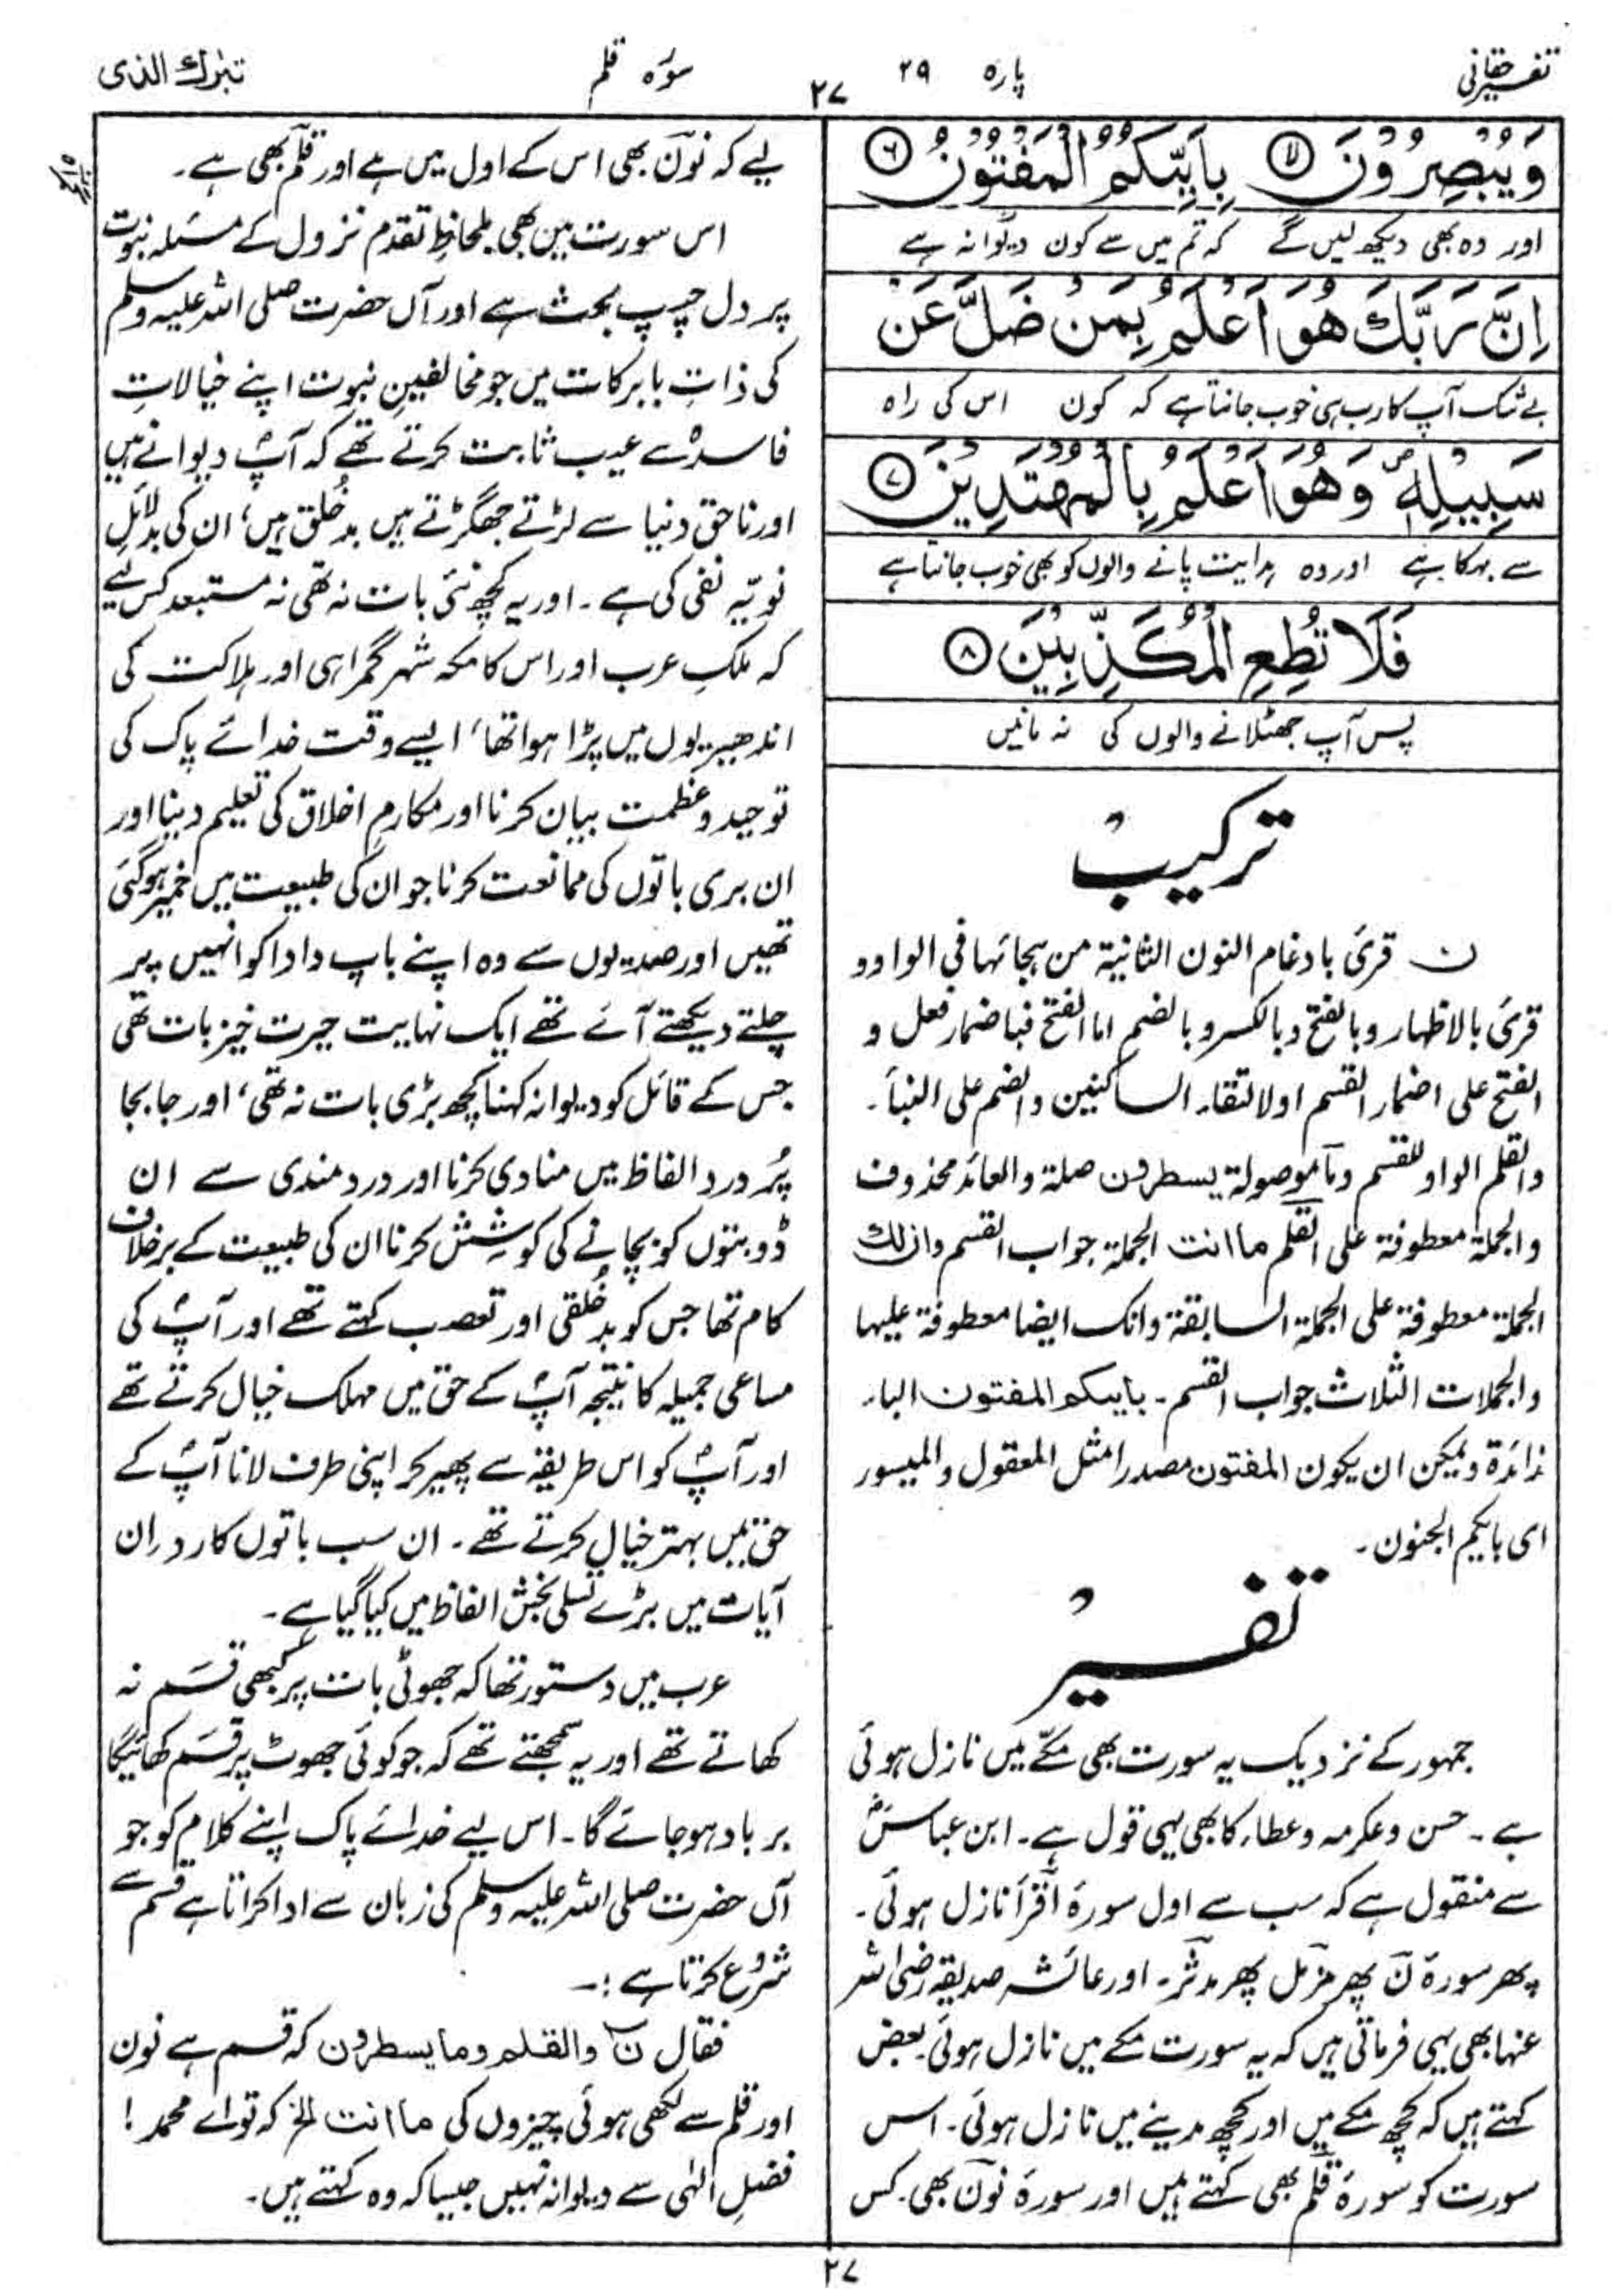 تفسیر حقانی
پارہ ۲۹
۲۷
سورہ قلم
تبٰرك الذی
وَيُبْصِرُوْنَ ۙ﴿۵﴾ بِاَيِّىكُمُ الْمَفْتُوْنُ ﴿۶﴾
اور وہ بھی دیکھ لیں گے کہ تم میں سے کون دیوانہ ہے
اِنَّ رَبَّكَ هُوَ اَعْلَمُ بِمَنْ ضَلَّ عَنْ
بے شک آپ کا رب ہی خوب جانتا ہے کہ کون اس کی راہ
سَبِيْلِهٖ ۪ وَهُوَ اَعْلَمُ بِالْمُهْتَدِيْنَ ﴿۷﴾
سے بہکا ہے اور وہ ہدایت پانے والوں کو بھی خوب جانتا ہے
فَلَا تُطِعِ الْمُكَذِّبِيْنَ ﴿۸﴾
پس آپ جھٹلانے والوں کی نہ مانیں
ترکیب
ن قرئ بادغام النون الثانیۃ من ہجائہا فی الواو و
قرئ بالاظہار وبالفتح وبالکسر وبالضم اما الفتح فباضمار فعل و
الفتح علی اضمار القسم او لالتقاء الساکنین والضم علی النبأ۔
والقلم الواو للقسم ومآ موصولۃ یسطرون صلۃ والعائد محذوف
والجملۃ معطوفۃ علی القلم ما انت الجملۃ جواب القسم وان لك
الجملۃ معطوفۃ علی الجملۃ السابقۃ وانک ایضا معطوفۃ علیہا
والجملات الثلاث جواب القسم۔ بایىکم المفتون الباء
زائدۃ ویمکن ان یکون المفتون مصدرا مثل المعقول والمیسور
ای بایکم الجنون۔
تفسیر
جمہور کے نزدیک یہ سورت بھی مکّے میں نازل ہوئی
ہے۔ حسن وعکرمہ وعطاء کا بھی یہی قول ہے۔ ابن عباسؓ
سے منقول ہے کہ سب سے اول سورۂ اقرأ نازل ہوئی۔
پھر سورۂ نٓ پھر مزمل پھر مدثر۔ اور عائشہ صدیقہ رضی اللہ
عنہا بھی یہی فرماتی ہیں کہ یہ سورت مکے میں نازل ہوئی۔ بعض
کہتے ہیں کہ کچھ مکے میں اور کچھ مدینے میں نازل ہوئی۔ اس
سورت کو سورۂ قلم بھی کہتے ہیں اور سورۂ نون بھی۔ کس
لیے کہ نون بھی اس کے اول میں ہے اور قلم بھی ہے۔
اس سورت میں بھی بلحاظِ تقدم نزول کے مسئلہ نبوت
پر دل چسپ بحث ہے اور آں حضرت صلی اللہ علیہ وسلم
کی ذاتِ بابرکات میں جو مخالفینِ نبوت اپنے خیالاتِ
فاسدہ سے عیب ثابت کرتے تھے کہ آپؐ دیوانے ہیں
اور ناحق دنیا سے لڑتے جھگڑتے ہیں بدخُلق ہیں، ان کی بدلائلِ
نویّہ نفی کی ہے۔ اور یہ کچھ نئی بات نہ تھی نہ مستبعد کس لیے
کہ ملکِ عرب اور اس کا مکہ شہر گمراہی اور ہلاکت کی
اندھیریوں میں پڑا ہوا تھا، ایسے وقت خدائے پاک کی
توحید وعظمت بیان کرنا اور مکارمِ اخلاق کی تعلیم دینا اور
ان بری باتوں کی ممانعت کرنا جو ان کی طبیعت میں خمیر ہوگئی
تھیں اور صدیوں سے وہ اپنے باپ دادا کو انہیں پر
چلتے دیکھتے آئے تھے ایک نہایت حیرت خیز بات تھی
جس کے قائل کو دیوانہ کہنا کچھ بڑی بات نہ تھی، اور جا بجا
پُر درد الفاظ میں منادی کرنا اور دردمندی سے ان
ڈوبتوں کو بچانے کی کوشش کرنا ان کی طبیعت کے برخلاف
کام تھا جس کو بدخُلقی اور تعصب کہتے تھے اور آپؐ کی
مساعی جمیلہ کا نتیجہ آپؐ کے حق میں مہلک خیال کرتے تھے
اور آپؐ کو اس طریقہ سے پھیر کر اپنی طرف لانا آپؐ کے
حق میں بہتر خیال کرتے تھے۔ ان سب باتوں کا رد ان
آیات میں بڑے تسلی بخش الفاظ میں کیا گیا ہے۔
عرب میں دستور تھا کہ جھوٹی بات پر کبھی قسم نہ
کھاتے تھے اور یہ سمجھتے تھے کہ جو کوئی جھوٹ پر قسم کھائیگا
برباد ہوجائے گا۔ اس لیے خدائے پاک اپنے کلام کو جو
آں حضرت صلی اللہ علیہ وسلم کی زبان سے ادا کراتا ہے قسم سے
شروع کرتا ہے :۔
فقال نٓ والقلم وما یسطرون کہ قسم ہے نون
اور قلم سے لکھی ہوئی چیزوں کی ما انت الخ کہ تو اے محمد !
فضلِ الٰہی سے دیوانہ نہیں جیسا کہ وہ کہتے ہیں۔
۲۷